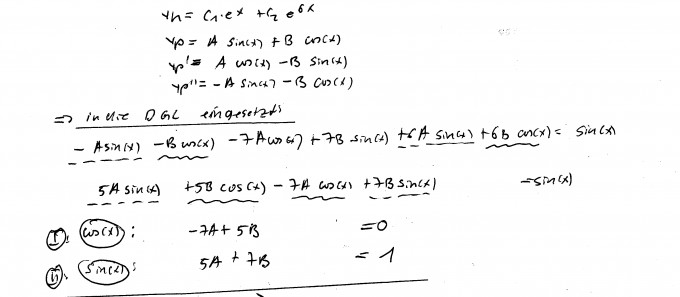 yh = C₁·eˣ + C₂ e⁶ˣ
yp = A sin(x) + B cos(x)
yp' = A cos(x) - B sin(x)
yp'' = -A sin(x) - B cos(x)
=> in die DGL eingesetzt:
-A sin(x) - B cos(x) - 7A cos(x) + 7B sin(x) + 6A sin(x) + 6B cos(x) = sin(x)
5A sin(x) + 5B cos(x) - 7A cos(x) + 7B sin(x) = sin(x)
I. cos(x): -7A + 5B = 0
II. sin(x): 5A + 7B = 1